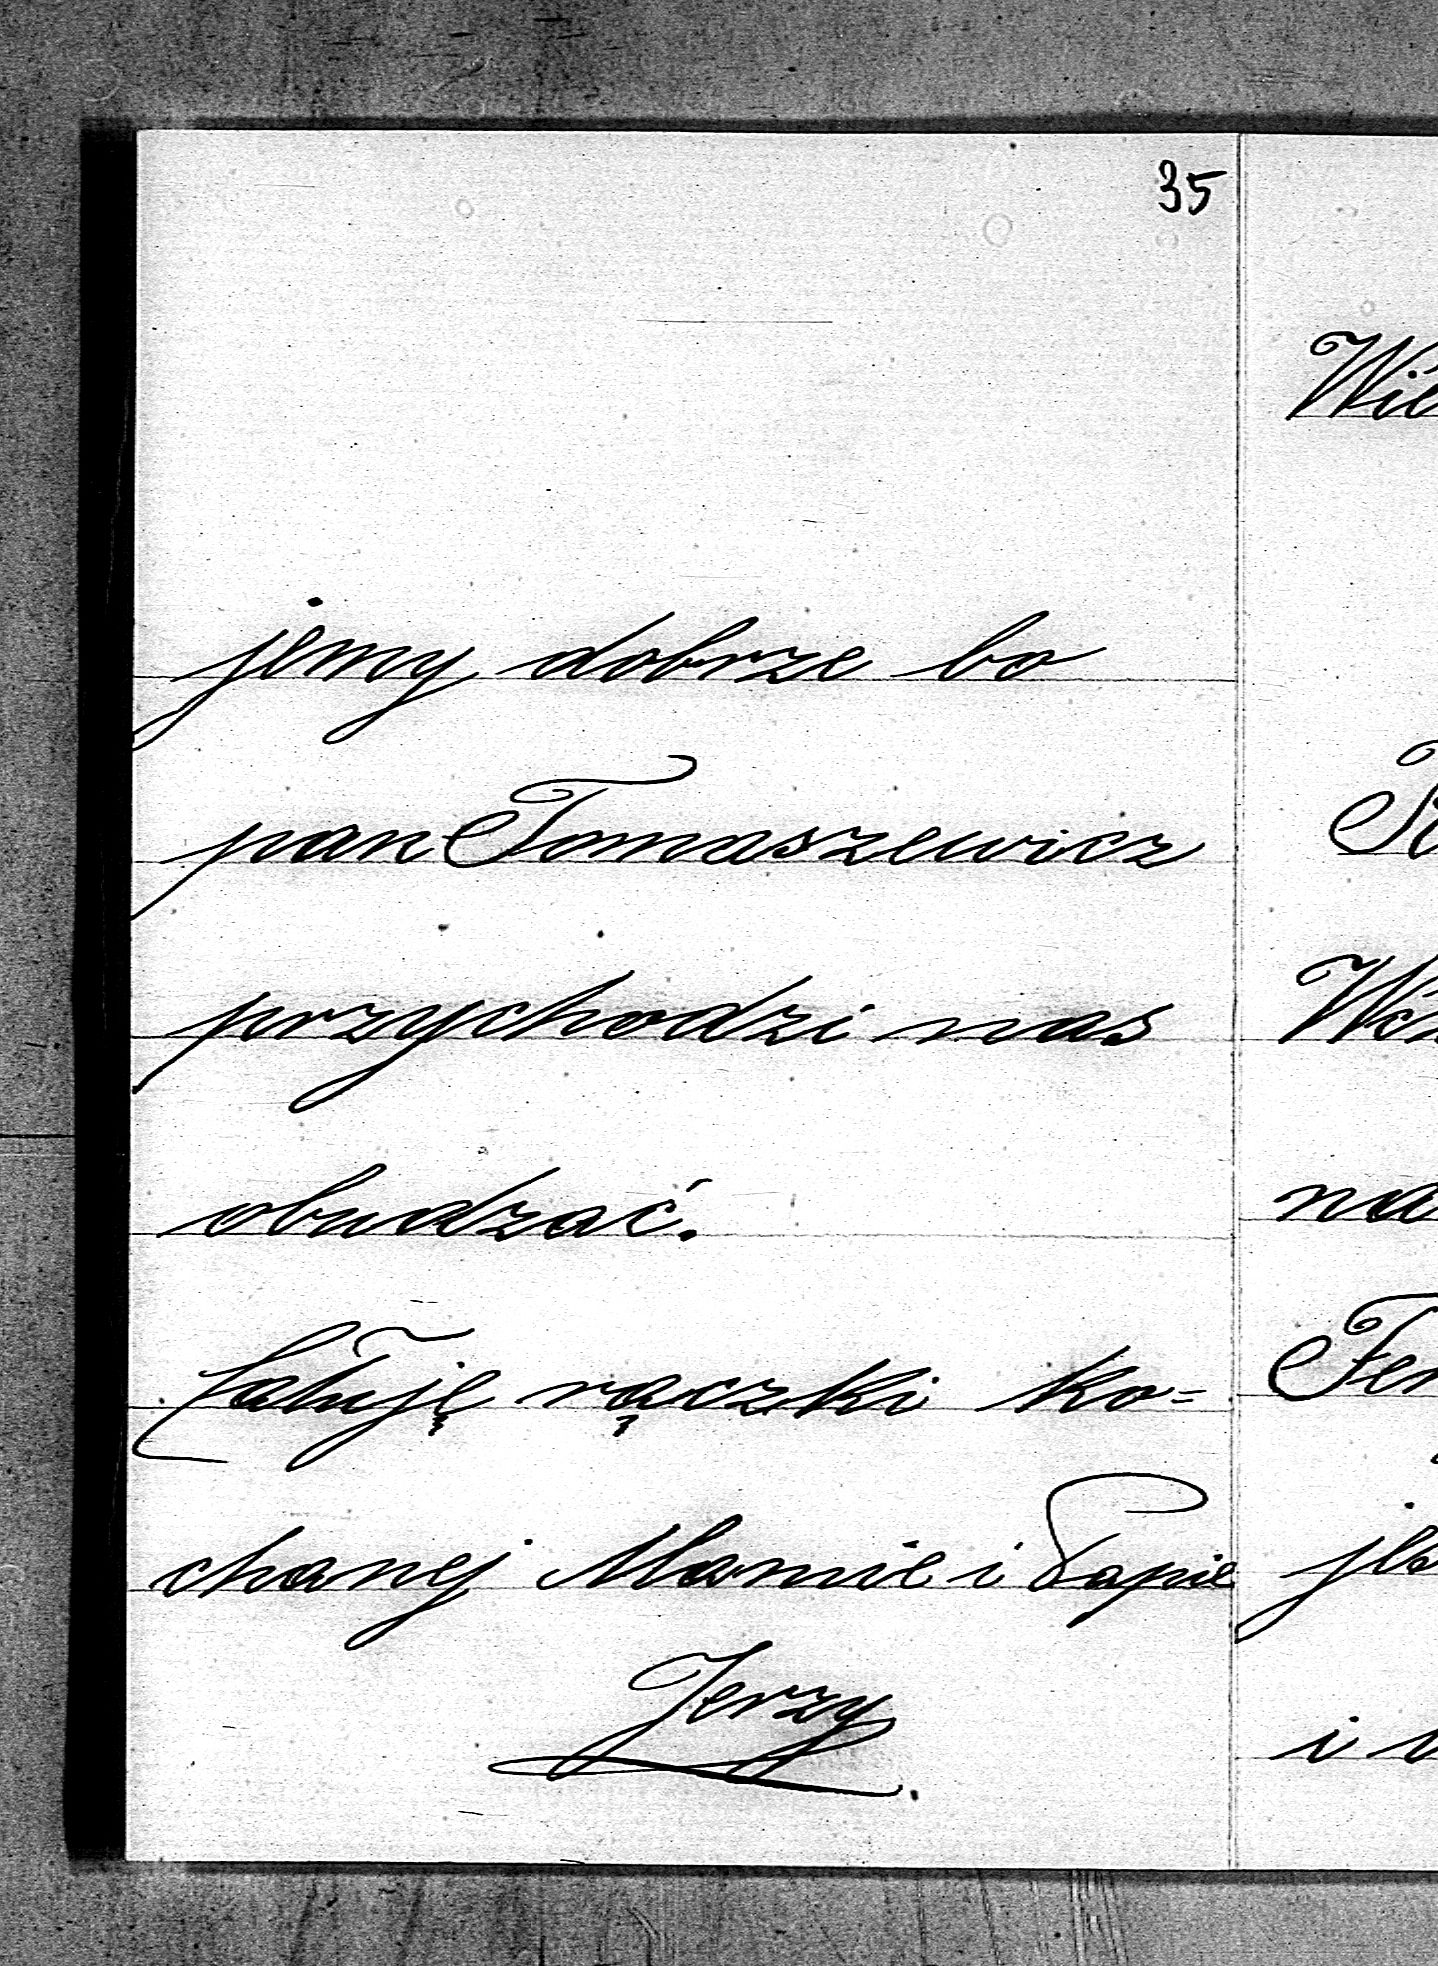 35
jemy dobrze bo
pan Tomaszewicz
przychodzi nas
obudzać.
Całuję rączki ko=
chanej Mamie i Papie
Jerzy.